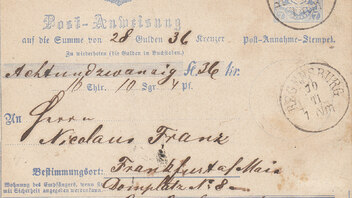 Post-Anweisung
auf die Summe von 28 Gulden 36 Kreuzer
Post-Annahme-Stempel.
Zu wiederholen (die Gulden in Buchstaben.)
Achtundzwanzig fl 36 kr.
Thlr. 10 Sgr. 4 Pf.
REGENSBURG
An
Herrn
Nicolaus Franz
Bestimmungsort: Frankfurt a/Main
Wohnung des Empfängers, wenn sie
mit Sicherheit angegeben werden
Domplatz N. 8